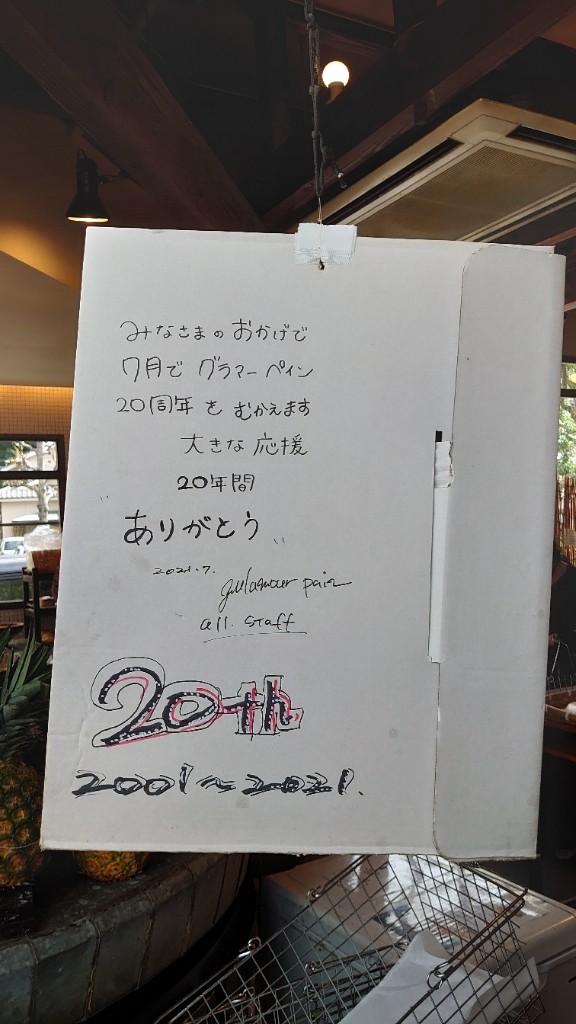 みなさまのおかげで
7月で グラマーペイン
20周年を むかえます
大きな応援
20年間
"ありがとう"
2021.7.
glamour pain
all. staff
20th
2001〜2021.